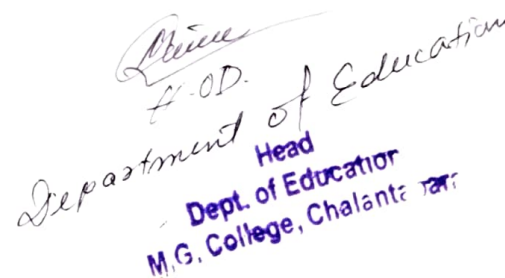 H.O.D.
Department of Education
Head
Dept. of Education
M.G. College,